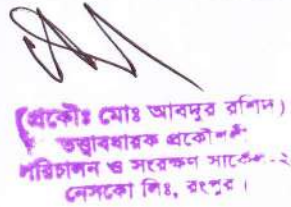 (প্রকৌঃ মোঃ আবদুর রশিদ)
তত্ত্বাবধায়ক প্রকৌশলী
পরিচালন ও সংরক্ষণ সার্কেল-২
নেসকো লিঃ, রংপুর।